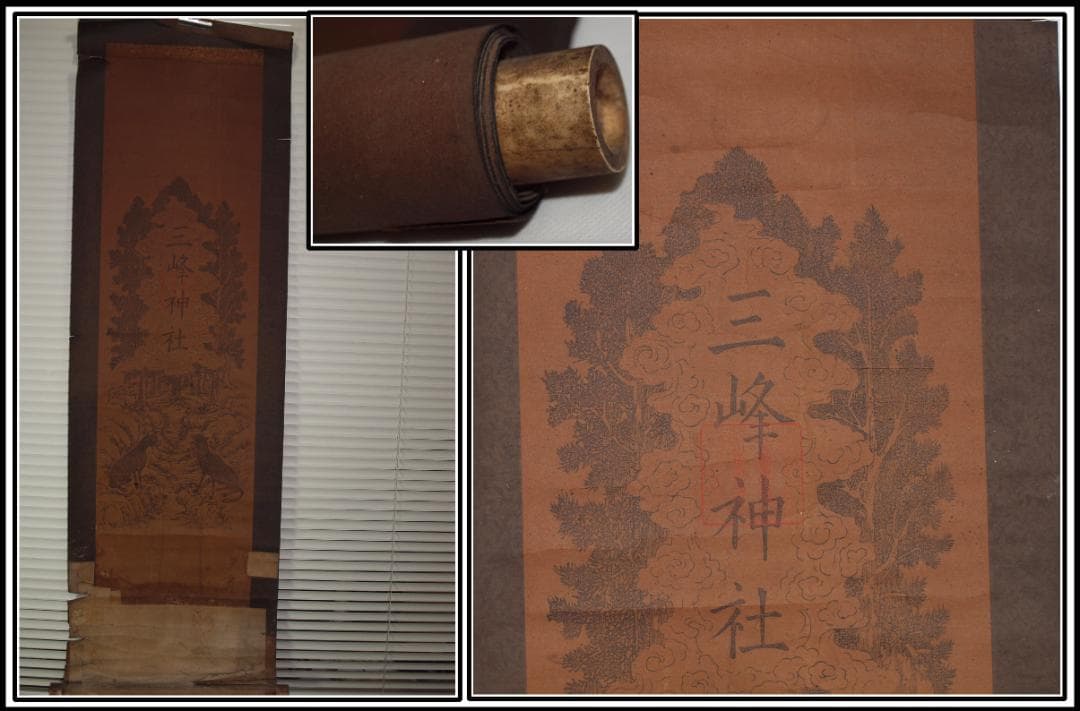 三峰神社
三峰神社